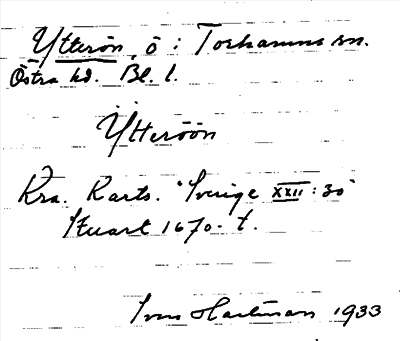 Ytterön, ö i Torhamns sn.
Östra hd. Bl. l.
Ytteröön
Kra. Karts. "Sverige XXII: 30"
Stuart 1670-t.
Sven Hartman 1933